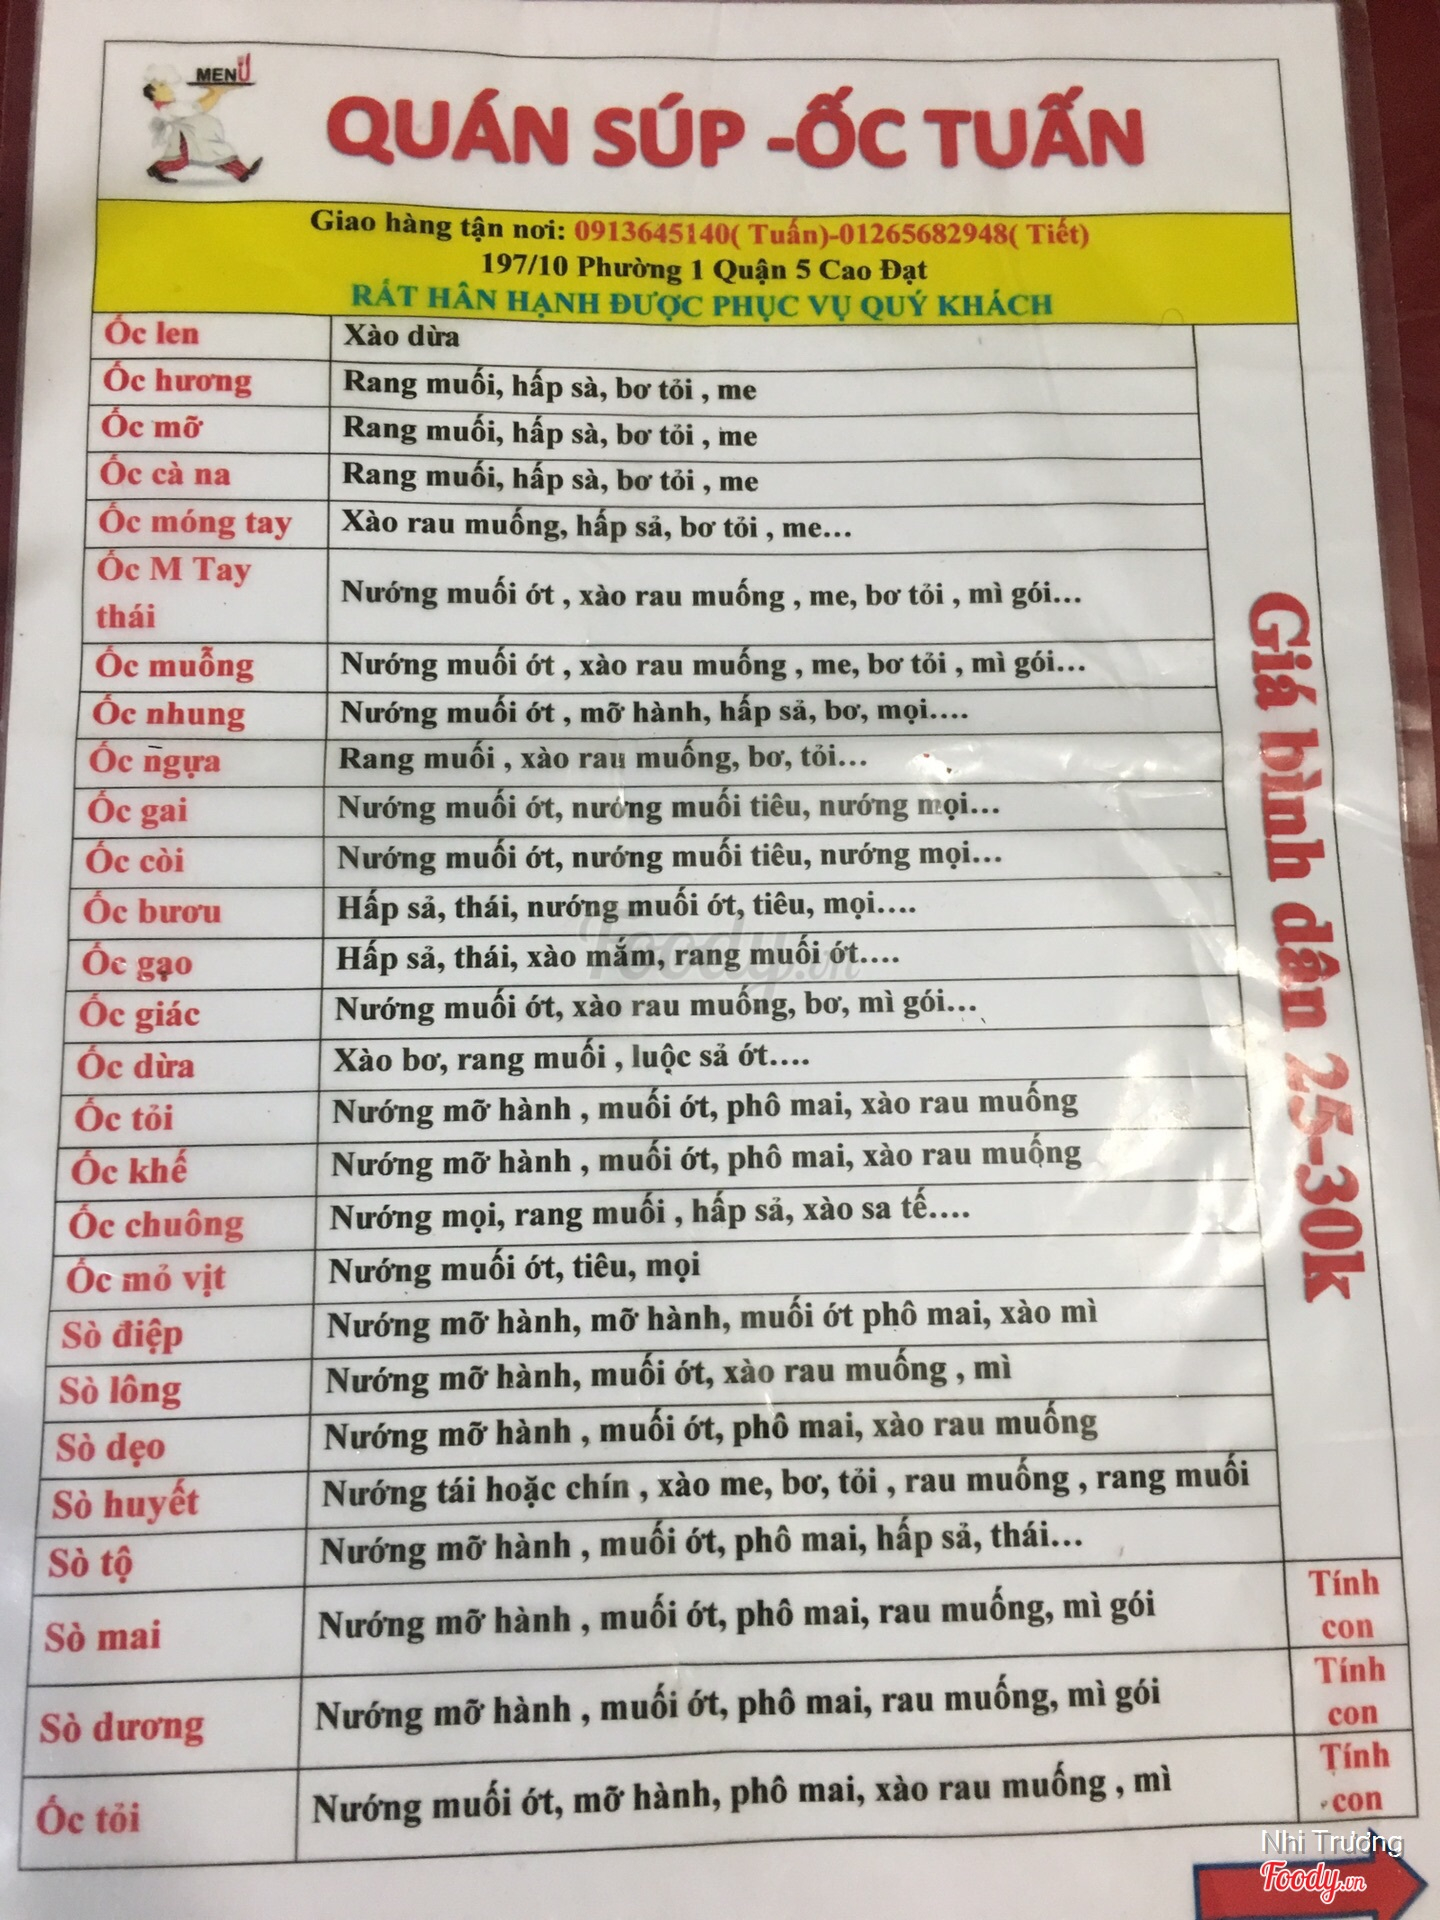 MENU
QUÁN SÚP -ỐC TUẤN
Giao hàng tận nơi: 0913645140( Tuấn)-01265682948( Tiết)
197/10 Phường 1 Quận 5 Cao Đạt
RẤT HÂN HẠNH ĐƯỢC PHỤC VỤ QUÝ KHÁCH
Ốc len Xào dừa
Ốc hương Rang muối, hấp sà, bơ tỏi , me
Ốc mỡ Rang muối, hấp sà, bơ tỏi , me
Ốc cà na Rang muối, hấp sà, bơ tỏi , me
Ốc móng tay Xào rau muống, hấp sả, bơ tỏi , me...
Ốc M Tay
thái
Nướng muối ớt , xào rau muống , me, bơ tỏi , mì gói...
Ốc muỗng Nướng muối ớt , xào rau muống , me, bơ tỏi , mì gói...
Ốc nhung Nướng muối ớt , mỡ hành, hấp sả, bơ, mọi....
Ốc ngựa Rang muối , xào rau muống, bơ, tỏi...
Ốc gai Nướng muối ớt, nướng muối tiêu, nướng mọi...
Ốc còi Nướng muối ớt, nướng muối tiêu, nướng mọi...
Ốc bươu Hấp sả, thái, nướng muối ớt, tiêu, mọi....
Ốc gạo Hấp sả, thái, xào mắm, rang muối ớt....
Ốc giác Nướng muối ớt, xào rau muống, bơ, mì gói...
Ốc dừa Xào bơ, rang muối , luộc sả ớt....
Ốc tỏi Nướng mỡ hành , muối ớt, phô mai, xào rau muống
Ốc khế Nướng mỡ hành , muối ớt, phô mai, xào rau muống
Ốc chuông Nướng mọi, rang muối , hấp sả, xào sa tế....
Ốc mỏ vịt Nướng muối ớt, tiêu, mọi
Sò điệp Nướng mỡ hành, mỡ hành, muối ớt phô mai, xào mì
Sò lông Nướng mỡ hành, muối ớt, xào rau muống , mì
Sò dẹo Nướng mỡ hành , muối ớt, phô mai, xào rau muống
Sò huyết Nướng tái hoặc chín , xào me, bơ, tỏi , rau muống , rang muối
Sò tộ Nướng mỡ hành , muối ớt, phô mai, hấp sả, thái...
Giá bình dân 25-30k
Sò mai Nướng mỡ hành , muối ớt, phô mai, rau muống, mì gói Tính
con
Sò dương Nướng mỡ hành , muối ớt, phô mai, rau muống, mì gói Tính
con
Ốc tỏi Nướng muối ớt, mỡ hành, phô mai, xào rau muống , mì Tính
con
Foody.vn
Nhi Trương
Foody.vn